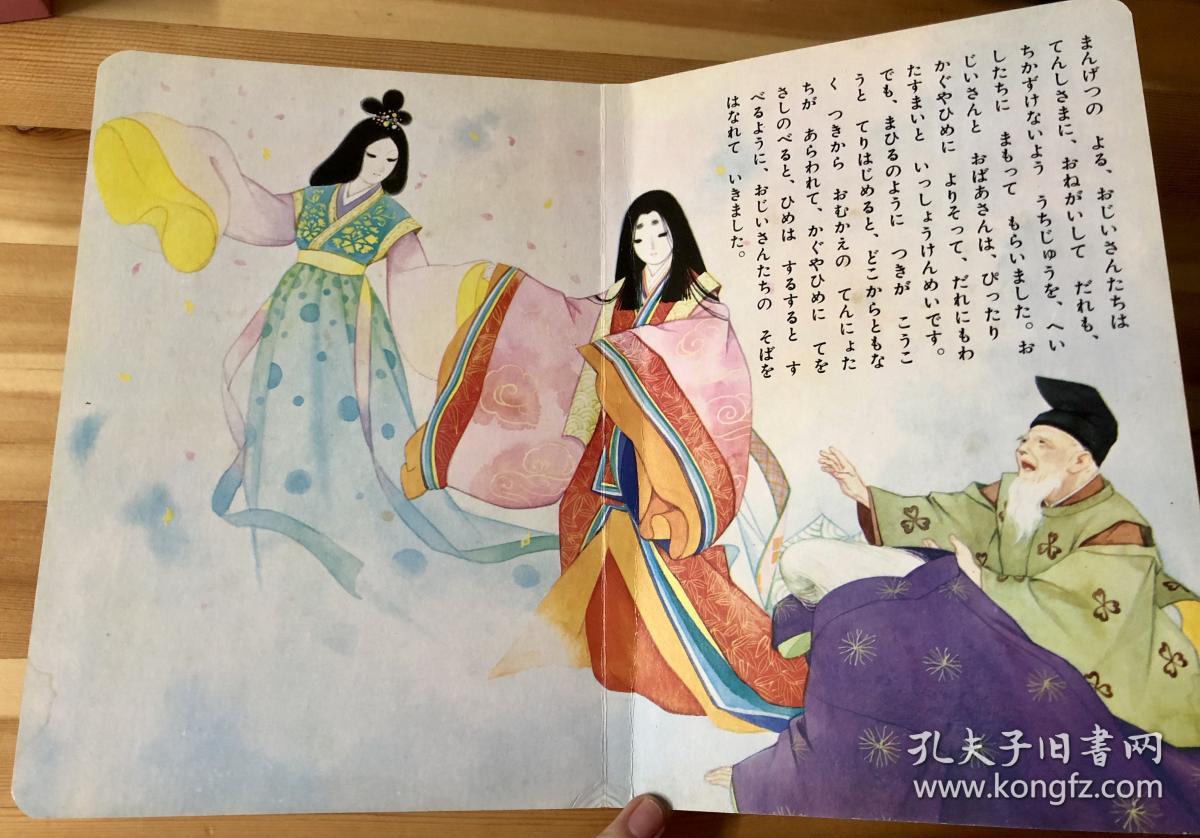 まんげつの　よる、おじいさんたちは
てんしさまに、おねがいして　だれも、
ちかずけないよう　うちじゅうを、へい
したちに　まもって　もらいました。お
じいさんと　おばあさんは、ぴったり
かぐやひめに　よりそって、だれにもわ
たすまいと　いっしょうけんめいです。
でも、まひるのように　つきが　こうこ
うと　てりはじめると、どこからともな
く　つきから　おむかえの　てんにょた
ちが　あらわれて、かぐやひめに　てを
さしのべると、ひめは　するすると　す
べるように、おじいさんたちの　そばを
はなれて　いきました。
孔夫子旧書网
www.kongfz.com